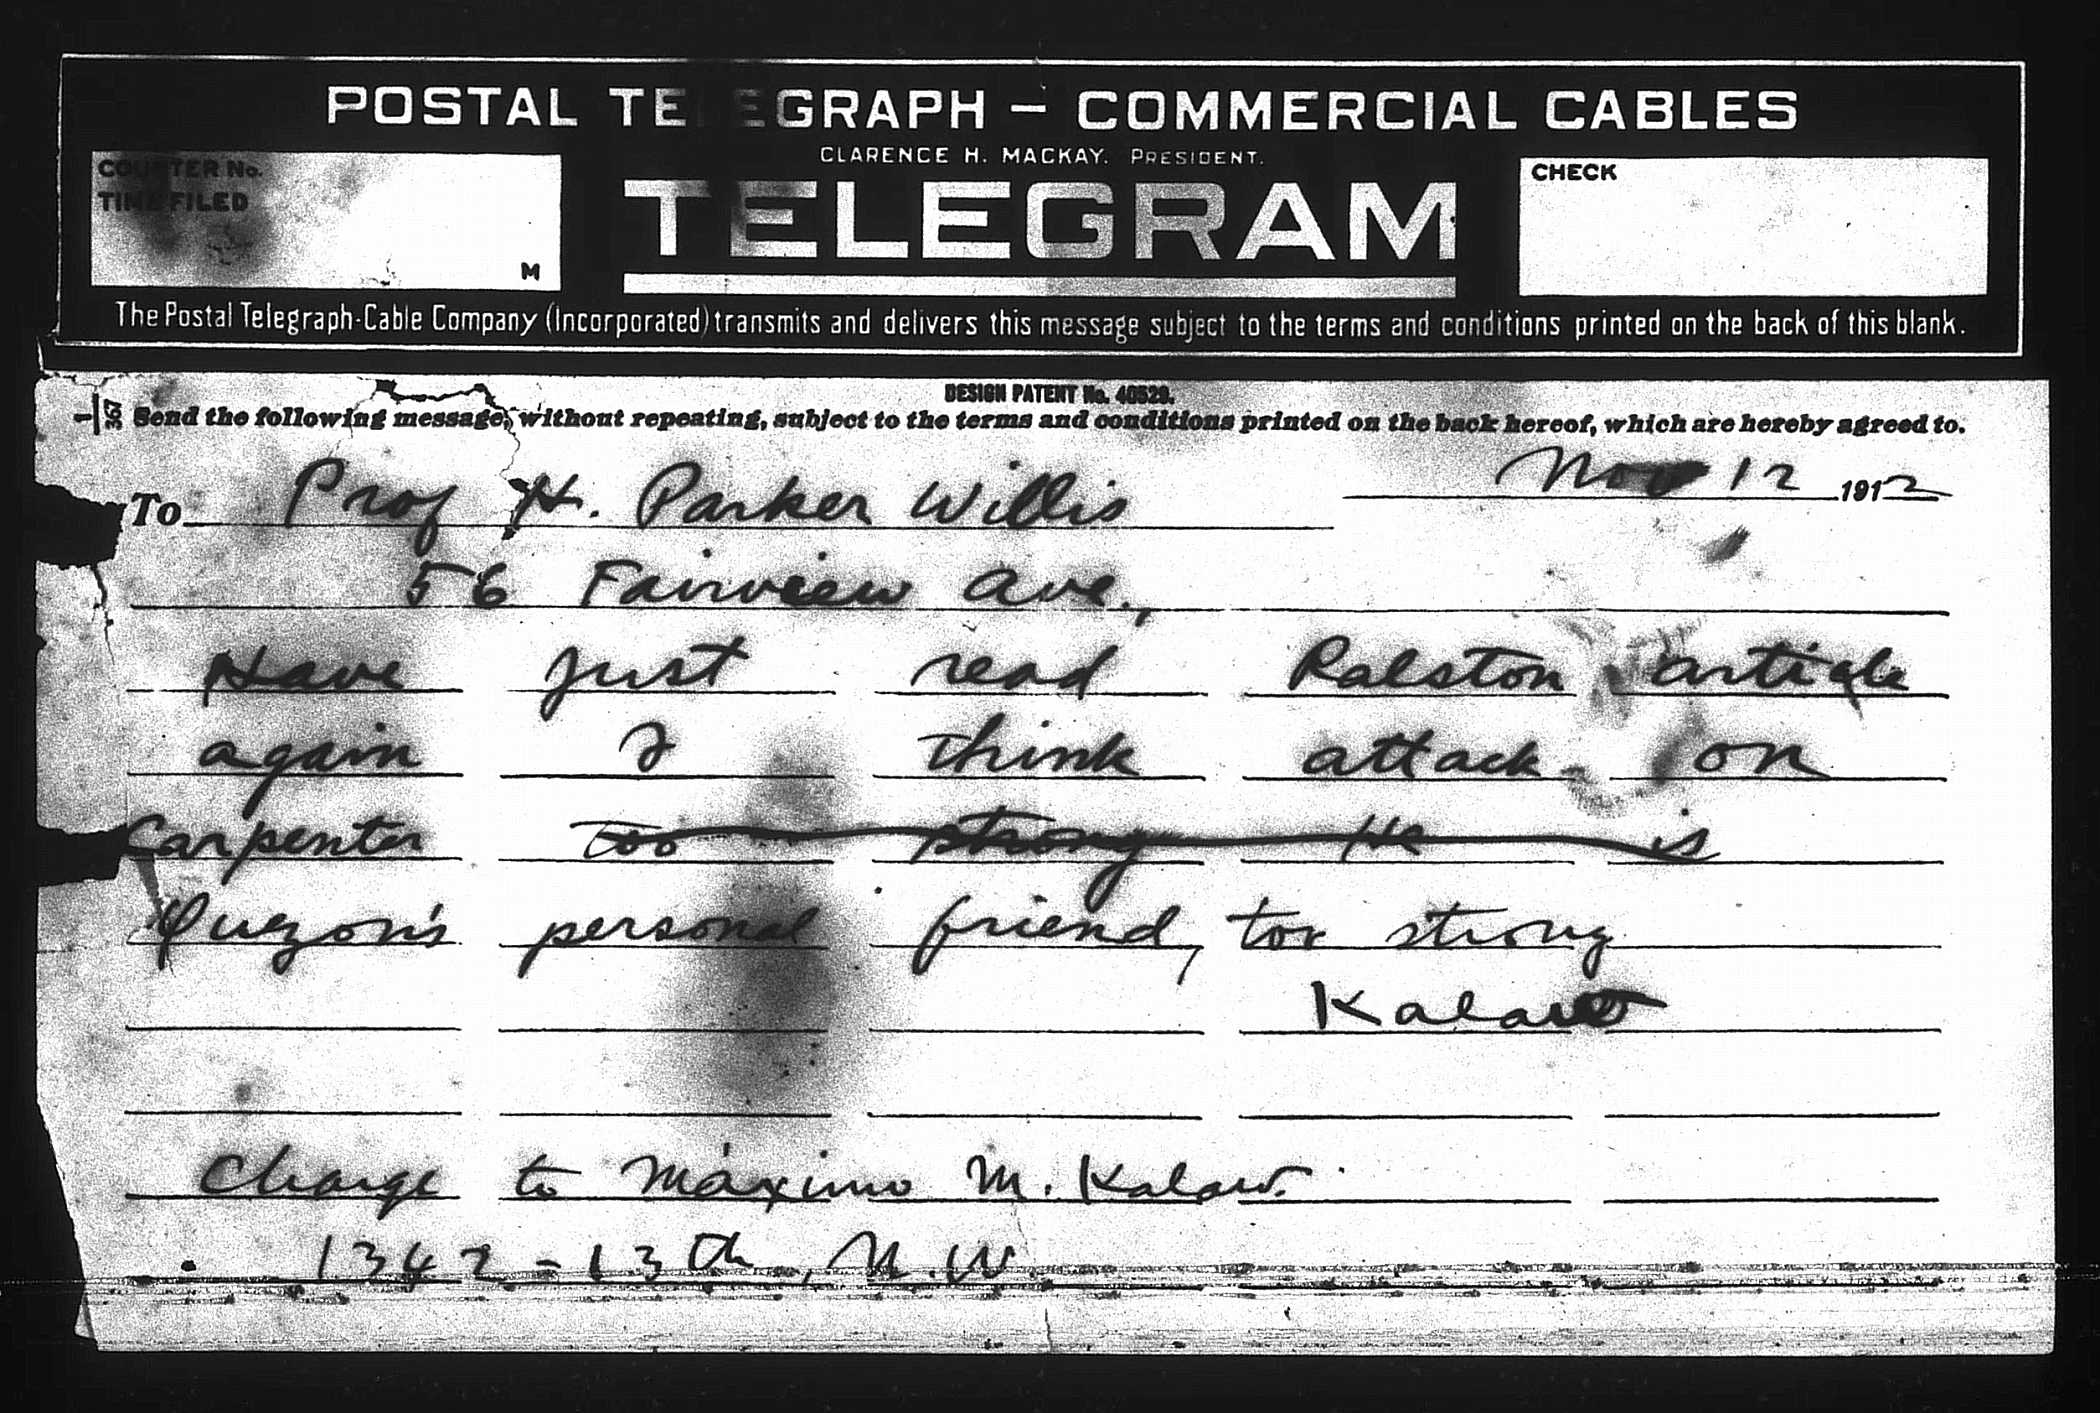 POSTAL TELEGRAPH — COMMERCIAL CABLES
CLARENCE H. MACKAY. PRESIDENT.
COUNTER No.
TIME FILED
M
TELEGRAM
CHECK
The Postal Telegraph-Cable Company (Incorporated) transmits and delivers this message subject to the terms and conditions printed on the back of this blank.
DESIGN PATENT No. 40529.
1-367 Send the following message, without repeating, subject to the terms and conditions printed on the back hereof, which are hereby agreed to.
Nov 12 1912
To Prof H. Parker Willis
56 Fairview Ave.,
Have just read Ralston article
again I think attack on
Carpenter too strong He is
Quezon's personal friend, too strong
Kalaw
Charge to Máximo M. Kalaw.
1342 - 13th, N.W.